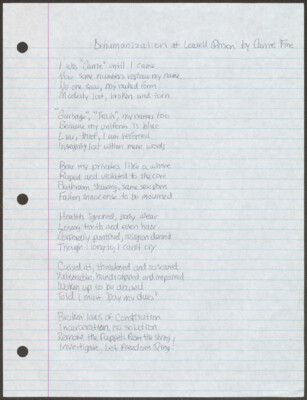 Dehumanization at Lowell Prison by Carrie Fox
I was "Carrie" until I came
Now some numbers replace my name
No one sees my naked form
Modesty lost, broken and torn
"Garbage", "Trash", my names too
Because my uniform is blue
Liar, thief, I am referred
Integrity lost within mere words
Bear my privates like a whore
Raped and violated to the core
Bathroom showing, same
Fallen innocence to be mourned
Health ignored, body wear
Losing teeth and even hair
Corporally punished,
Though I long to, I can't cry
Threatened and so scared
Vulnerable, handicapped and impaired
Woken up to be abused
Told I must "pay my dues"
Broken laws of Constitution
Incarceration, no solution
Remove the Puppets from the String!
Investigate. Let Freedom Ring!